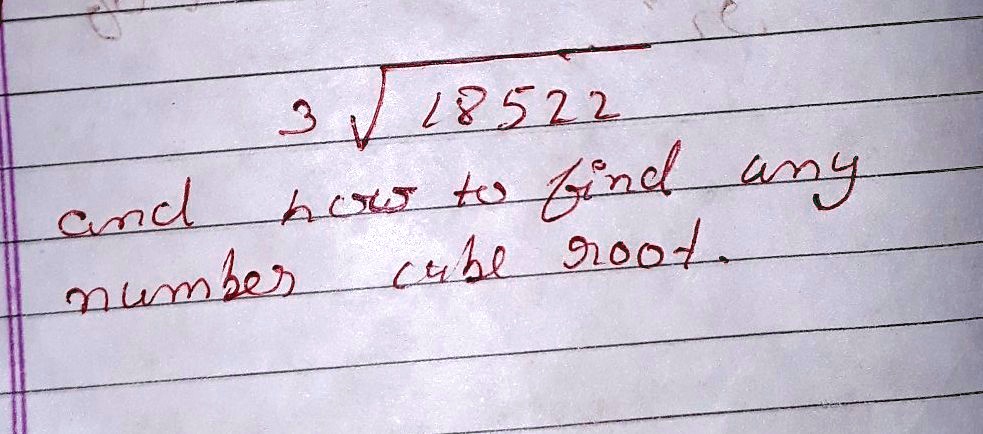 3√18522
and how to find any
number cube root.